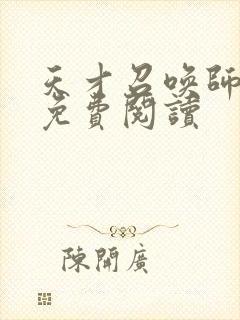 天才召喚師
免費閱讀
陳開廣